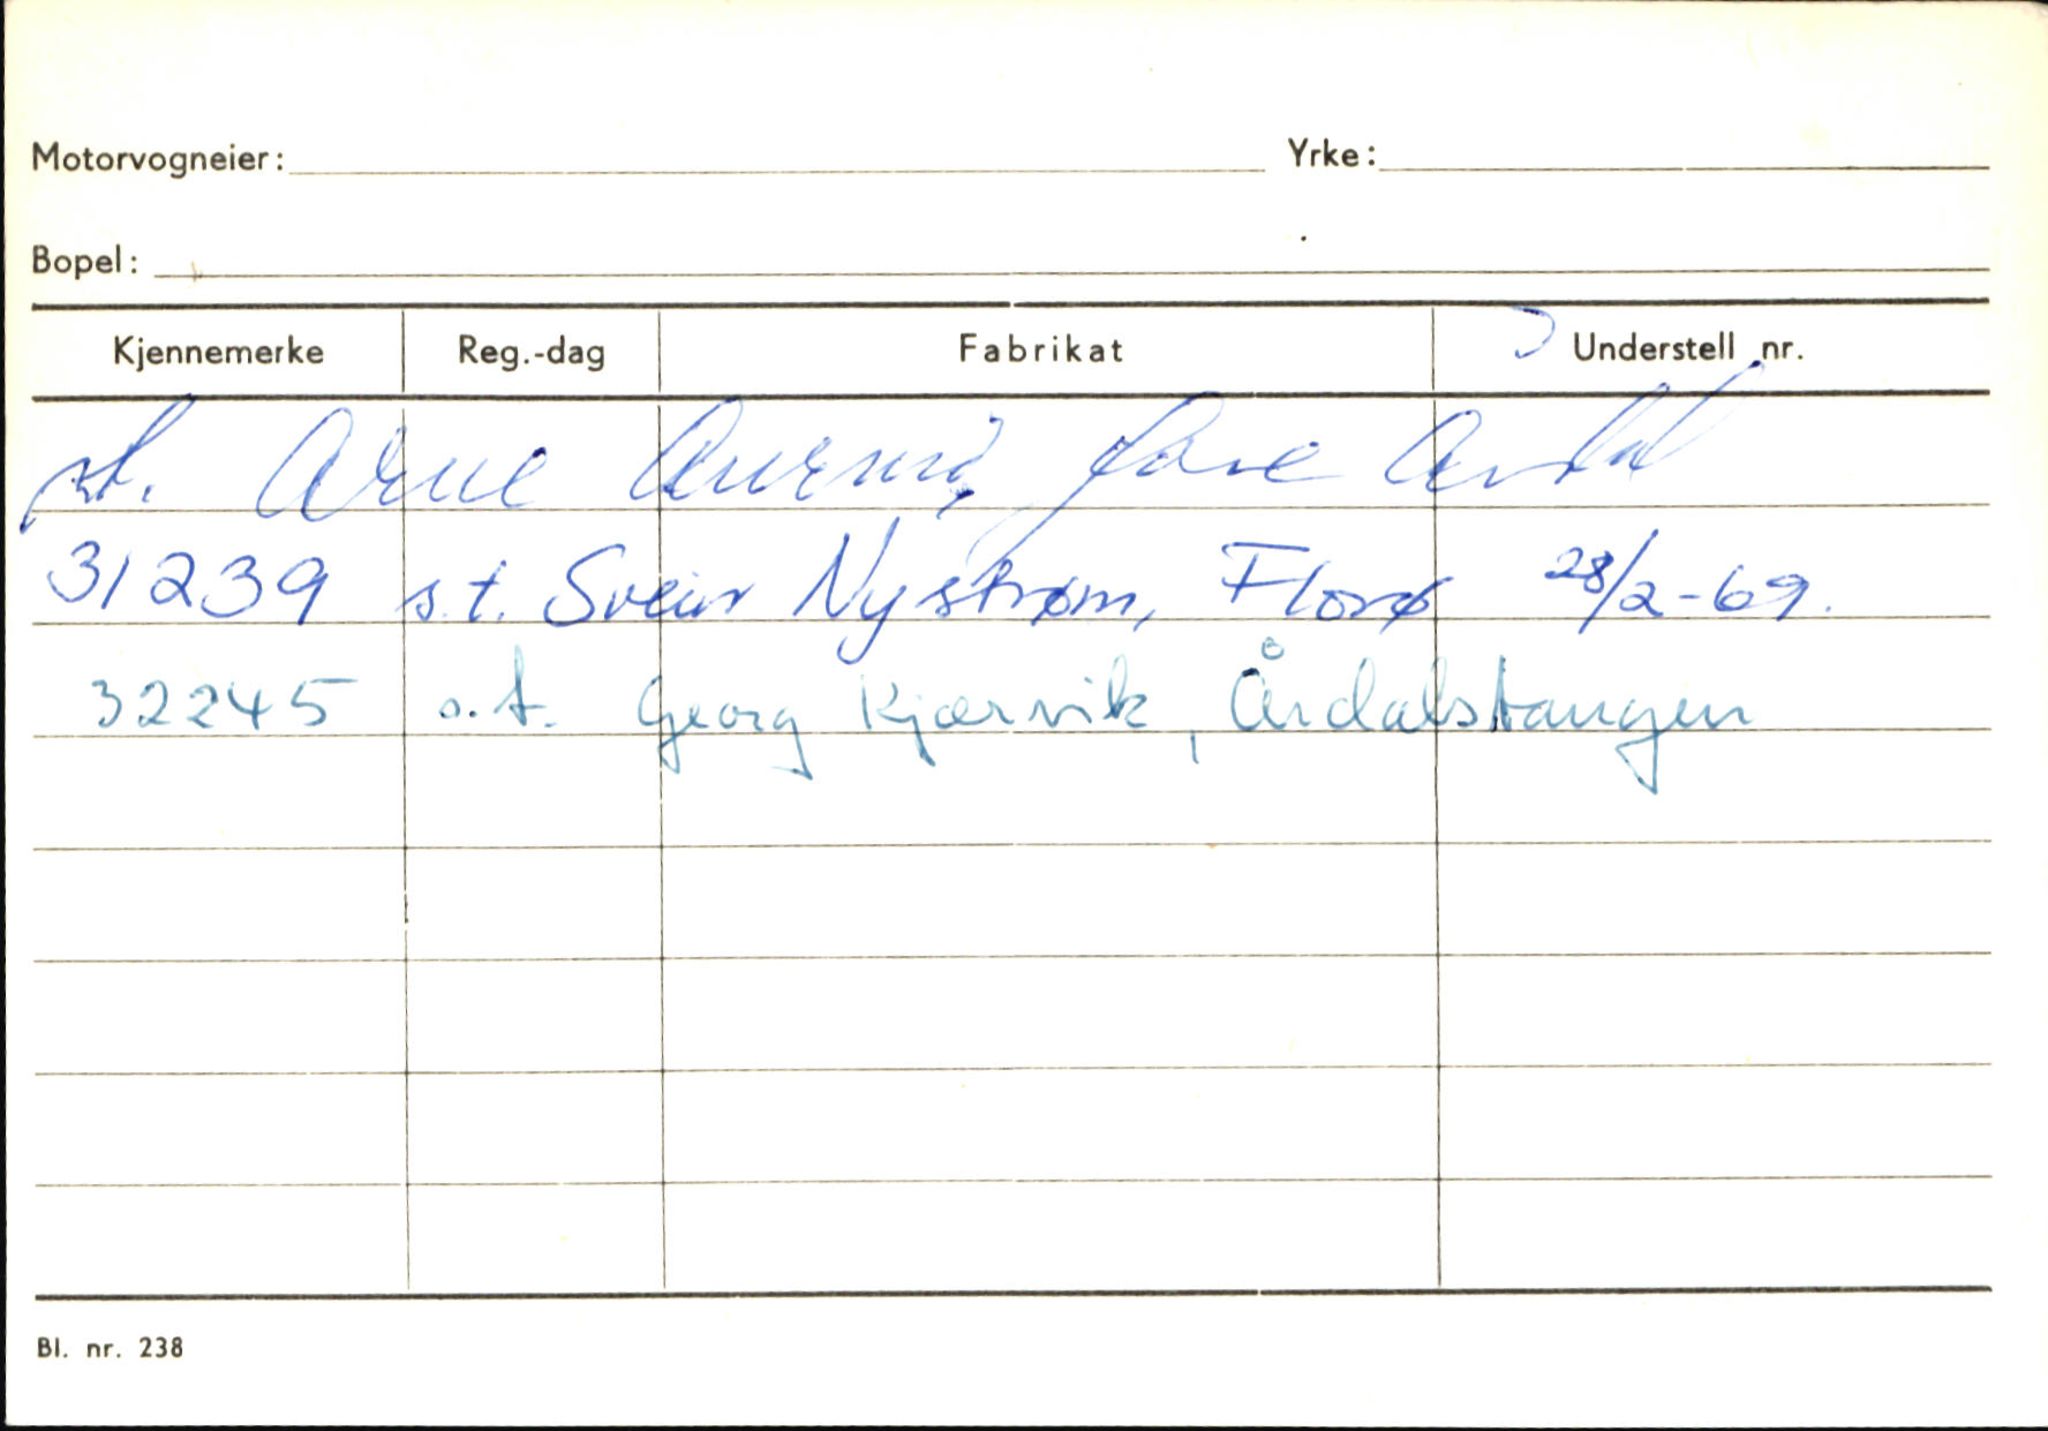 Motorvogneier: Yrke:
Bopel:
Kjennemerke Reg.-dag Fabrikat Understell nr.
s.t. Arne
31239 s.t. Svein Nystrøm, Florø 28/2-69.
32245 s.t. Georg Kjærvik, Årdalstangen
Bl. nr. 238